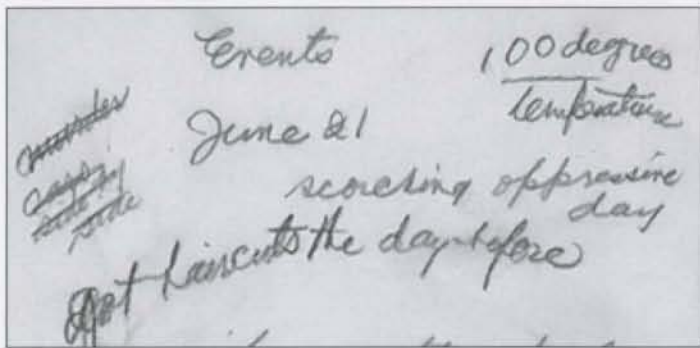 Events
100 degrees
temperature
June 21
scorching oppressive
day
side by
side
got haircuts the day before